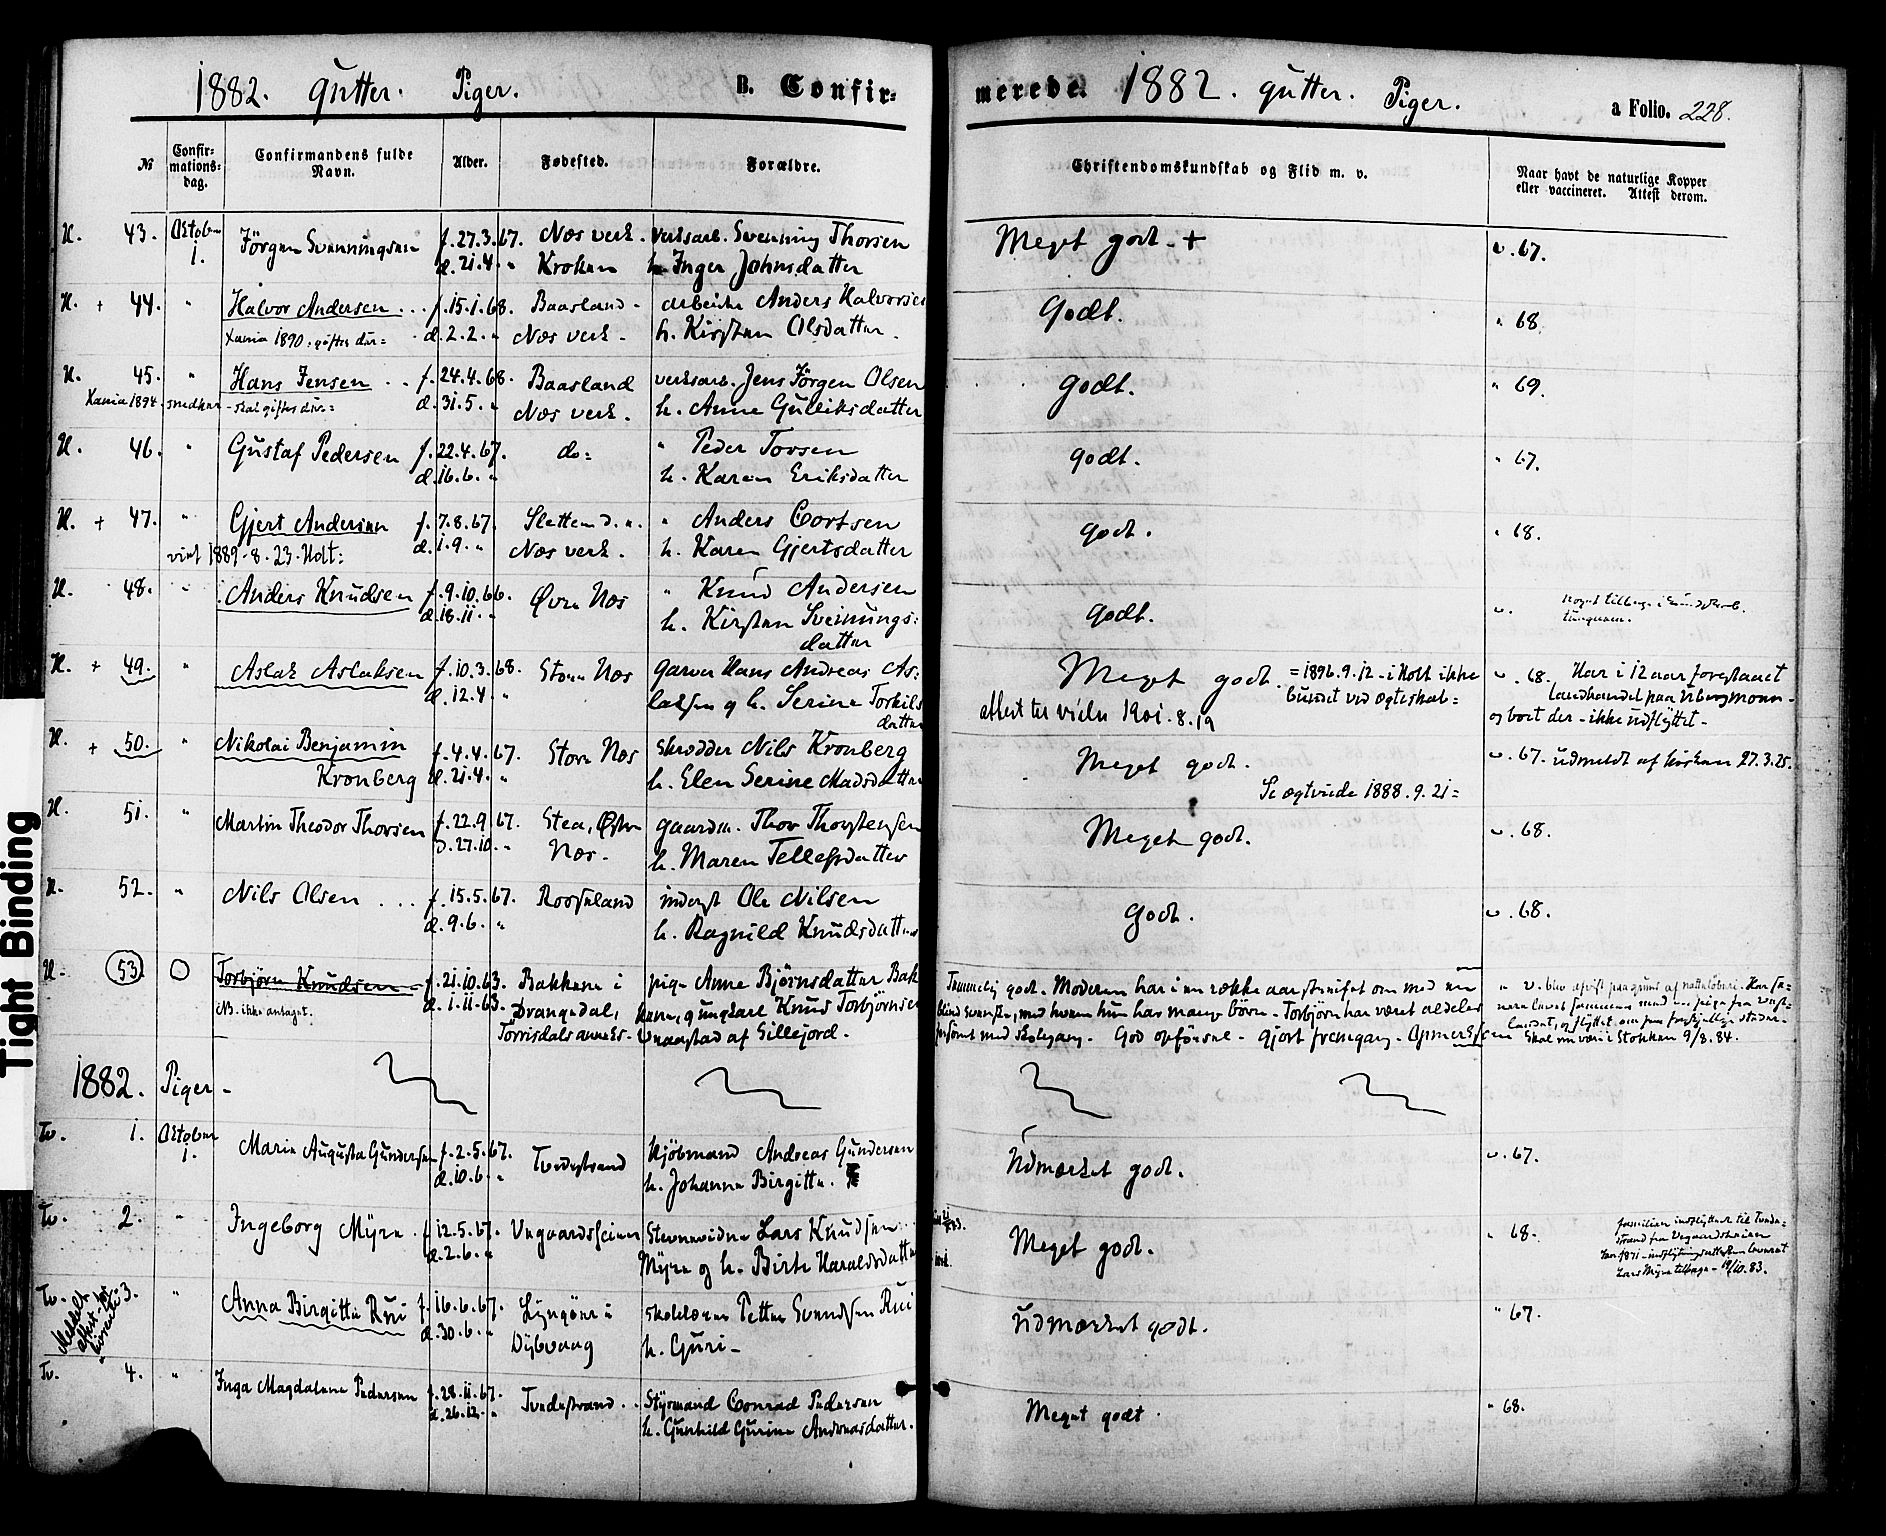 1882. Gutter. Piger. B. Confir-
merede. 1882. Gutter. Piger. a Folio. 228.
№ Confir-mations-dag. Confirmandens fulde Navn. Alder. Fødested. Forældre. Christendomskundskab og Flid m. v. Naar havt de naturlige Kopper eller vaccineret. Attest derom.
H. 43. Oktober 1. Jörgen Svenningsen f. 27.3.67. Næs verk. verksarb. Svenning Thorsen Meget godt. + v. 67.
d. 21.4. " Kroken h. Inger Johnsdatter
H. + 44. " Halvor Andersen f. 15.1.68. Baasland - arbeider Anders Halvorsen Godt. " 68.
Xania 1890: giftes der = d. 2.2. " Næs verk. h. Kirsten Olsdatter.
H. 45. " Hans Jensen f. 24.4.68. Baasland verksarb. Jens Jörgen Olsen Godt. " 69.
Xania 1894. snedker - skal giftes der = d. 31.5. " Næs verk. h. Anne Gulliksdatter
H. 46. " Gustaf Pedersen f. 22.4.67. do: " Peder Torsen Godt. " 67.
d. 16.6. " h. Karen Eriksdatter
H. + 47. " Gjert Andersen f. 7.8.67. Sletten d. n. " Anders Cortsen Godt. " 68.
viet 1889.8.23. Holt: d. 1.9. " Næs verk. h. Karen Gjertsdatter
H. 48. " Anders Knudsen f. 9.10.66. Øvre Næs " Knud Andersen Godt. v.
d. 18.11. " h. Kirsten Svennings:
datter
H. + 49. " Aslak Aslaksen f. 10.3.68. Store Næs garver Hans Andreas As: Meget godt. = 1896.9.12 - i Holt ikke v. 68. Har i 12 aar forestaaet
d. 12.4. " laksen og h. Serine Torkils bundet ved ægteskab = landhandel paa
datter attest til vielse 1901.8.19 og bort der - ikke udflyttet -
H. + 50. " Nikolai Benjamin f. 4.4.67. Store Næs skrædder Nils Kronberg Meget godt. v. 67. udmeldt af kirken 27.3.25.
Kronberg d. 21.4. " h. Elen Serine Madsdatter Se ægteviede 1888.9.21 =
H. 51. " Martin Theodor Thorsen f. 22.9.67. Stea, Østre gaardm. Thor Thorstensen Meget godt. v. 68.
d. 27.10. " Næs. h. Maren Tellefsdatter
H. 52. " Nils Olsen f. 15.5.67. Roosneland inderst Ole Nilsen Godt. v. 68.
d. 9.6. " h. Ragnild Knudsdatter
H. 53. Torbjörn Knudsen f. 21.10.63. Bakkene i pige Anne Björnsdatter Bak Temmelig godt. Moderen har i en række aar streifet om med en " v. blev afvist paa grund af natteløberi. Har se-
NB. ikke antaget. d. 1.11.63. Drangedal, kene, g ungkarl Knud Torbjörnsen blind svenske, med hvem hun har mange börn - Torbjörn har været aldeles nere levet sammen med en pige fra vest-
Torrisdals annex. Vraastad af Sillejord. forsömt med skolegang. God opförsel - gjort fremgang - Opmerksom landet, og flyttet om paa forskjellige steder - Skal nu være i Stokken 9/8.84.
1882. Piger -
Tv. 1. Oktober 1. Marie Augusta Gundersen f. 2.5.67. Tvedestrand kjöbmand Andreas Gundersen Udmærket godt. v. 67.
d. 10.6. " h. Johanne Birgitte.
Tv. 2. " Ingeborg Myre f. 12.5.67. Vegaardsheien Stevnevidne Lars Knudsen Meget godt. " 68. familien indflyttet til Tvede-
d. 2.6. " Myre og h. Birte Haraldsdatter strand fra Vegaardsheien
1871 - indflytningsattesten leveret
Lars Myre tilbage - 19/10.83.
Tv. 3. " Anna Birgitte Rui f. 16.6.67. Lyngöer i skolelærer Petter Svendsen Rui Udmærket godt. " 67.
Meldt attest d. 30.6. " Dybvaag h. Guri -
Tv. 4. " Inga Magdalene Pedersen f. 28.11.67. Tvedestrand. Styrmand Conrad Pedersen Meget godt. " 68.
d. 26.12. " h. Gunhild Gurine Andreasdatter.
Tight Binding